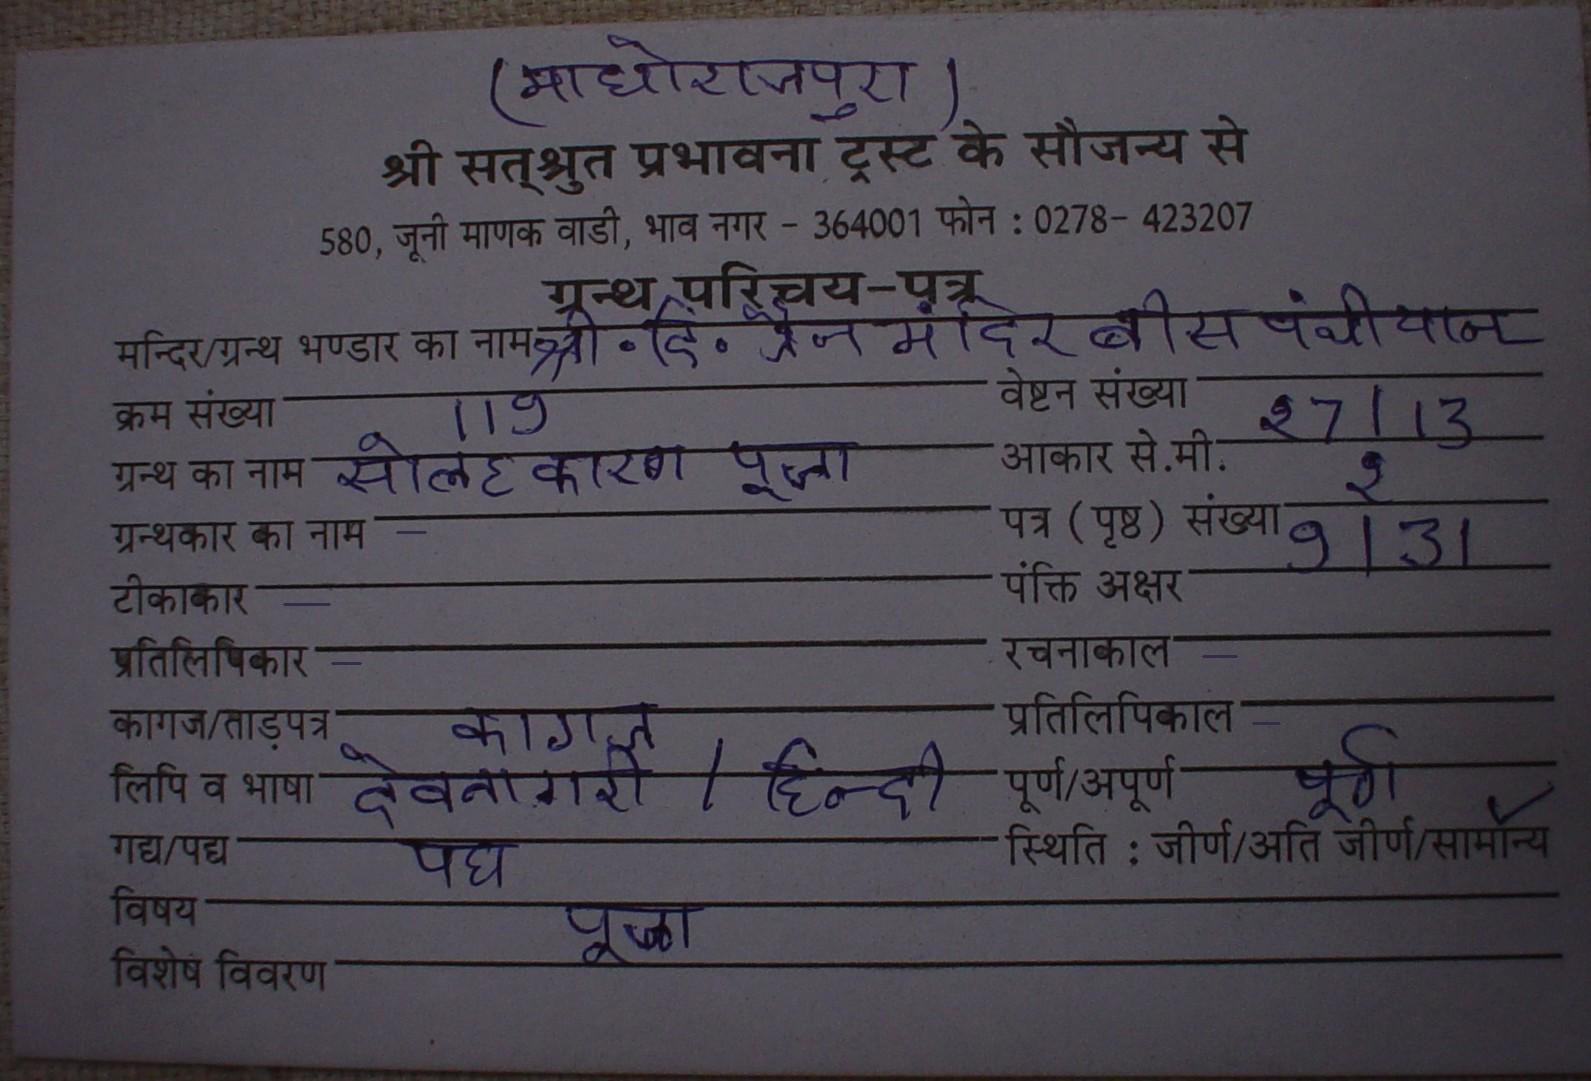 (माधोराजपुरा)
श्री सत्श्रुत प्रभावना ट्रस्ट के सौजन्य से
580, जूनी माणक वाडी, भाव नगर - 364001 फोन : 0278- 423207
ग्रन्थ परिचय-पत्र
मन्दिर/ग्रन्थ भण्डार का नाम श्री. दि. जैन मंदिर बीस पंथीयान
क्रम संख्या 119 वेष्टन संख्या
ग्रन्थ का नाम सोलह कारण पूजा आकार से.मी. २7 | 13
ग्रन्थकार का नाम - पत्र (पृष्ठ) संख्या २
टीकाकार - पंक्ति अक्षर 9 | 31
प्रतिलिपिकार - रचनाकाल -
कागज/ताड़पत्र कागज प्रतिलिपिकाल -
लिपि व भाषा देवनागरी / हिन्दी पूर्ण/अपूर्ण पूर्ण
गद्य/पद्य पद्य स्थिति : जीर्ण/अति जीर्ण/सामान्य ✓
विषय पूजा
विशेष विवरण